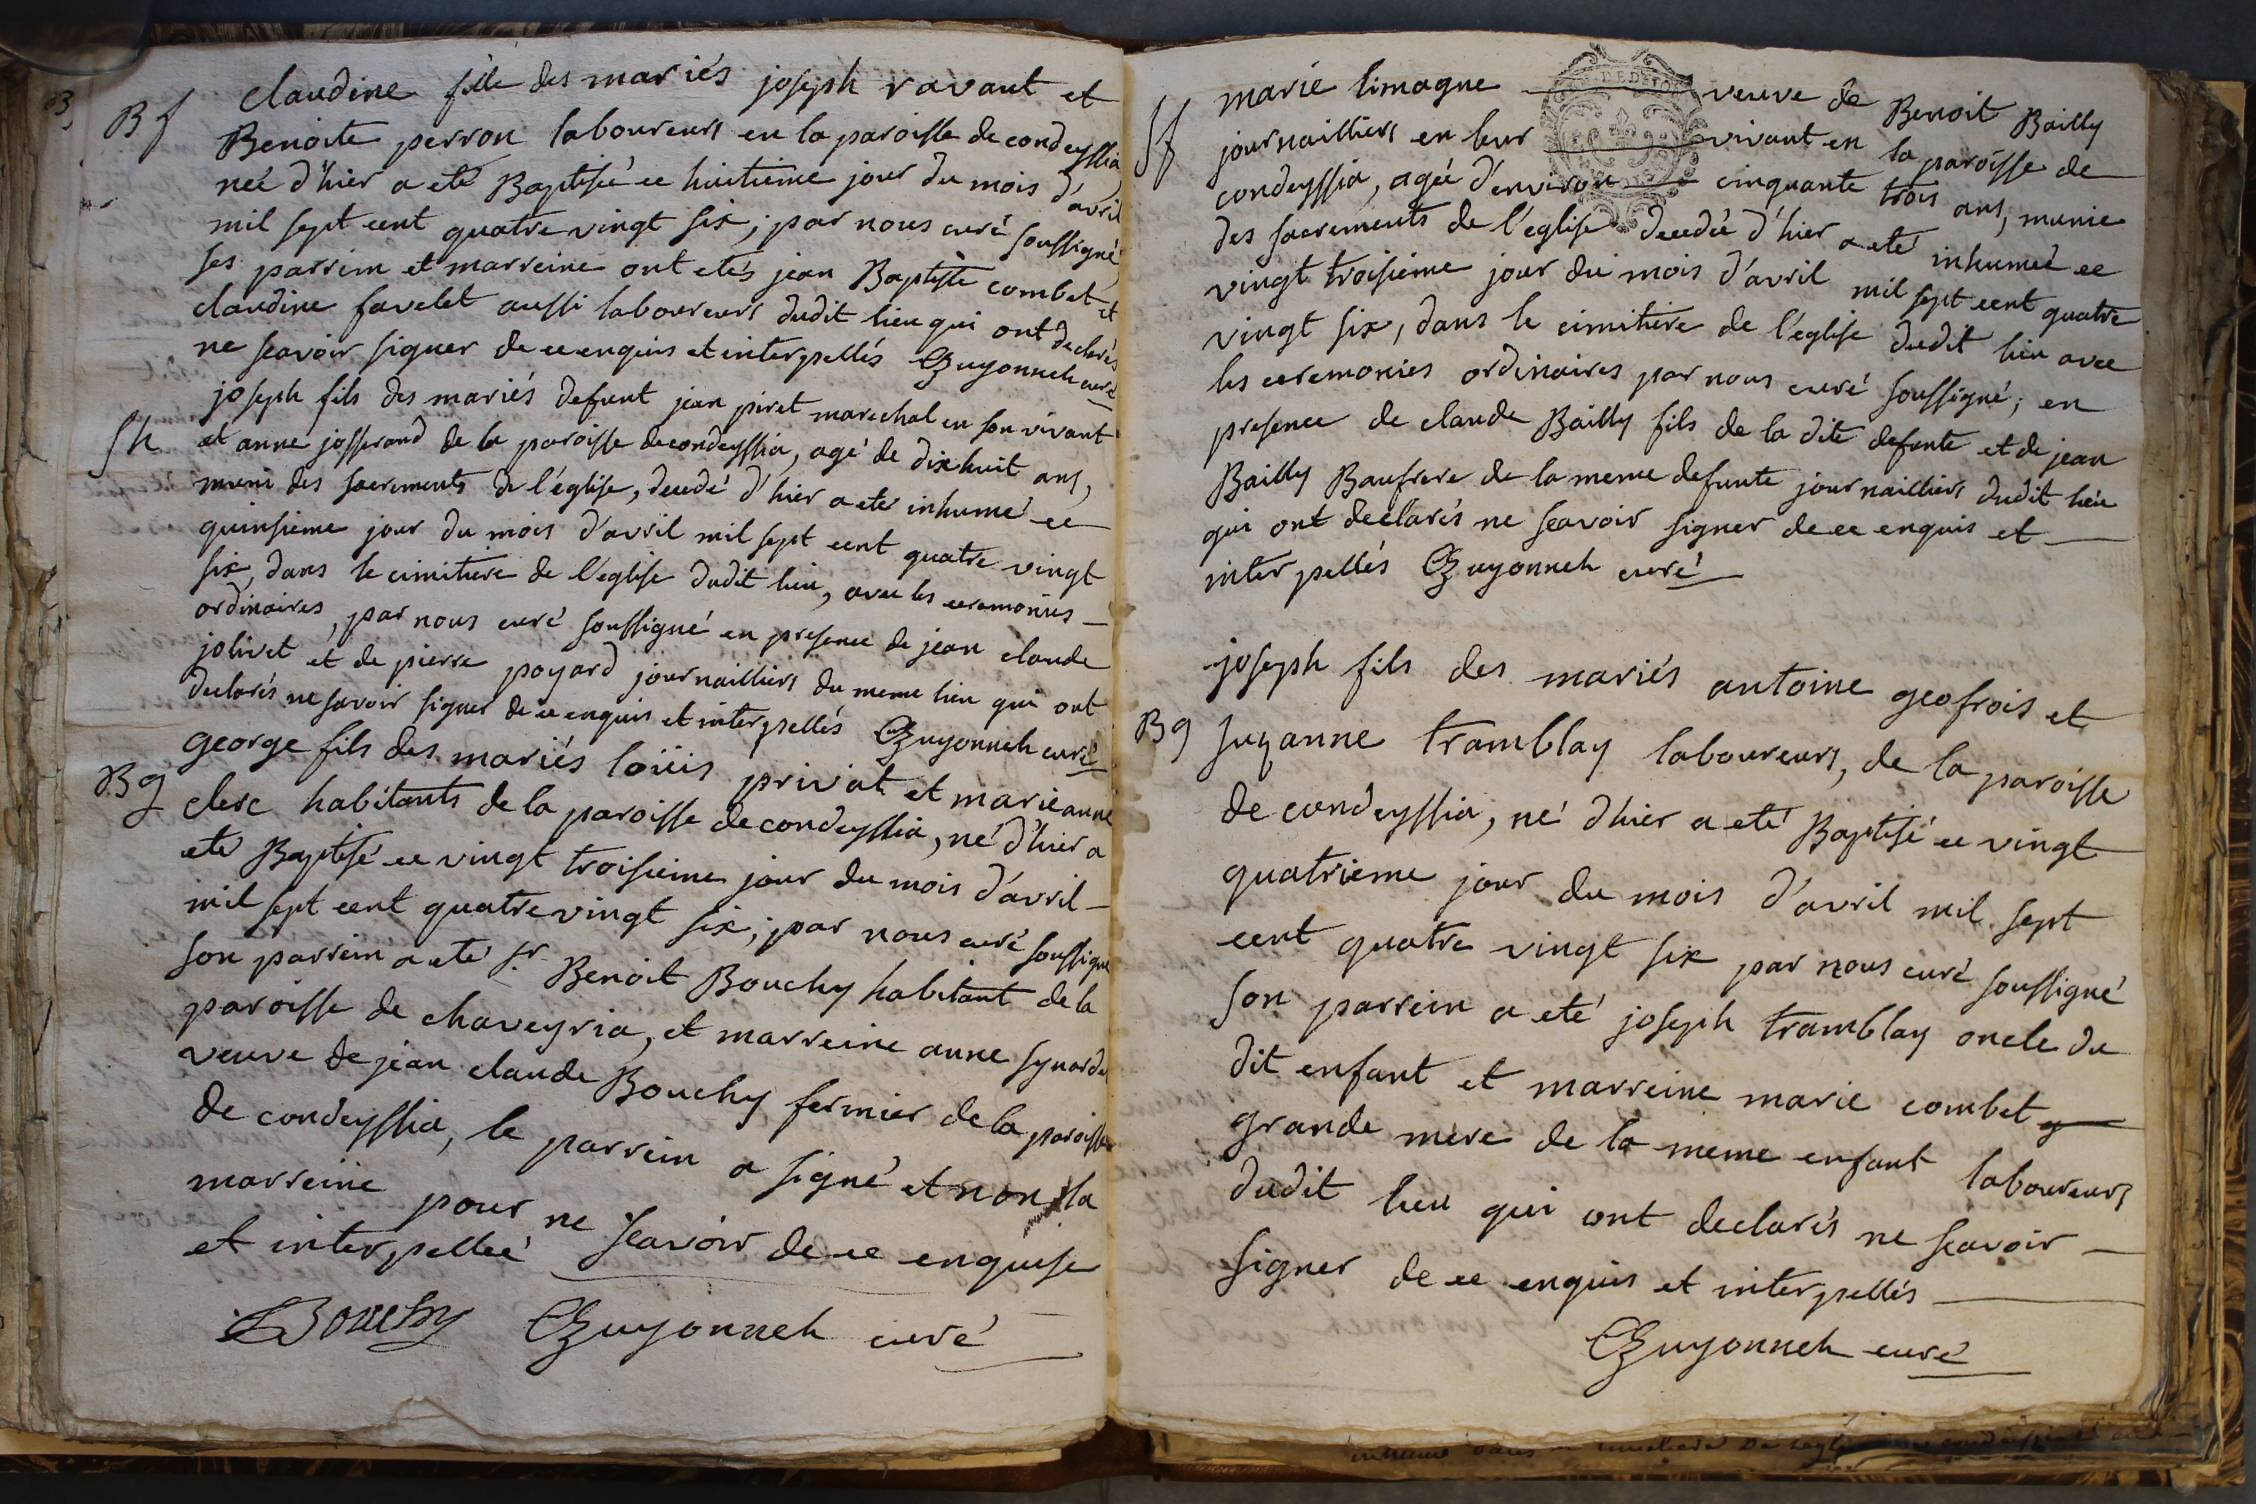 B f
claudine fille des mariés joseph ravant et
Benoite perron laboureurs en la paroisse de condeyssia
neé d'hier a eté Baptisé ce huitieme jour du mois d'avril
mil sept cent quatre vingt six; par nous curé soussigné
ses parrin et marreine ont etés jean Baptiste combet et
claudine favelet aussi laboureurs dudit lieu qui ont declarés
ne scavoir signer de ce enquis et interpellés Guyonneh curé
S h
joseph fils des mariés defunt jean piret marechal en son vivant
et anne josserand de la paroisse de condeyssia, agé de dix huit ans,
muni des sacrements de l'église, decedé d'hier a eté inhumé ce
quinsieme jour du mois d'avril mil sept cent quatre vingt
six, dans le cimitiere de l'eglise dudit lieu, avec les ceremonies
ordinaires, par nous curé soussigné en presence de jean claude
jolivet et de pierre poyard journailliers du meme lieu qui ont
declarés ne savoir signer de ce enquis et interpellés Guyonneh curé
B g
george fils des mariés loüis privat et marie anne
clerc habitants de la paroisse de condeyssia, né d'hier a
eté Baptisé ce vingt troisieme jour du mois d'avril
mil sept cent quatre vingt six; par nous curé soussigné
son parrein a eté sr Benoit Bouchy habitant de la
paroisse de chaveyria, et marreine anne
veuve de jean claude Bouchy fermier de la paroisse
de condeyssia, le parrein a signé et non la
marreine pour ne scavoir de ce enquise
et interpelleé
Bouchy Guyonneh curé
S f
marie limagne veuve de Benoit Bailly
journailliers en leur vivant en la paroisse de
condeyssia, ageé d'environ cinquante trois ans, munie
des sacrements de l'église decedeé d'hier a eté inhumeé ce
vingt troisieme jour du mois d'avril mil sept cent quatre
vingt six, dans le cimitiere de l'église dudit lieu avec
les ceremonies ordinaires par nous curé soussigné; en
presence de claude Bailly fils de la dite defunte et de jean
Bailly Baufrere de la meme defunte journailliers dudit lieu
qui ont declarés ne scavoir signer de ce enquis et
interpellés Guyonneh curé
B g
joseph fils des mariés antoine geofrois et
suzanne tramblay laboureurs, de la paroisse
de condeyssia, né d'hier a eté Baptisé ce vingt
quatrieme jour du mois d'avril mil sept
cent quatre vingt six par nous curé soussigné
son parrein a eté joseph tramblay oncle du
dit enfant et marreine marie combet
grande mere de la meme enfant laboureurs
dudit lieu qui ont declarés ne scavoir
signer de ce enquis et interpellés
Guyonneh curé